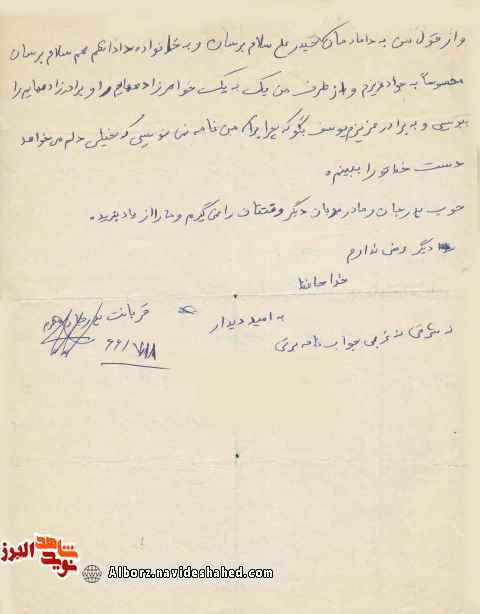 و از قول من به دامادمان حیدر علی سلام برسان و به خانواده دادا هم سلام برسان
مخصوصاً به جواد عزیزم و از طرف من یک به یک خواهرزاده‌هایم و برادرزاده‌هایم را
ببوسی و به برادر عزیزم یوسف بگو که چرا برای من نامه نمی نویسی که خیلی دلم می‌خواهد
دست خط تو را ببینم
خوب پدر جان و مادر مهربان دیگر وقتتان را نمی گیرم و ما را از یاد نبرید.
دیگر عرضی ندارم
خدا حافظ
به امید دیدار
قربانت
جواب نامه
۶۶/۷/۱۸
شاهد
نوید
البرز
Alborz.navideshahed.com